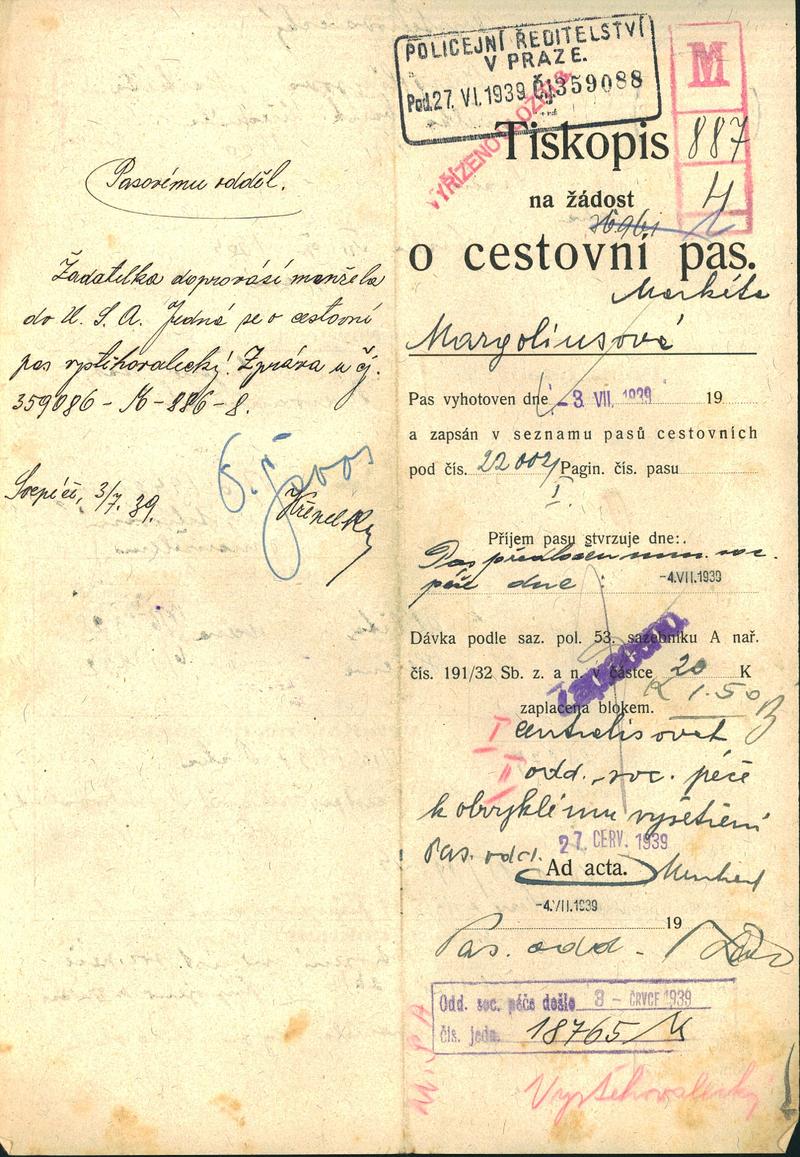 Pasovému odděl.
Žadatelka doprovází manžela
do U. S. A. Jedná se o cestovní
pas vystěhovalecký! Zpráva u čj.
359086 - M - 886 - 8.
3/7. 39.
POLICEJNÍ ŘEDITELSTVÍ
V PRAZE.
Pod. 27. VI. 1939 Čj. 359088
M
887
4
VYŘÍZENO
Tiskopis
na žádost
o cestovní pas.
Markéta
Margoliusová
Pas vyhotoven dne - 3. VII. 1939 19
a zapsán v seznamu pasů cestovních
pod čís. 22002/ Pagin. čís. pasu
I.
Příjem pasu stvrzuje dne:
Pas předložen min. soc.
péče dne : -4.VII.1939
Dávka podle saz. pol. 53. sazebníku A nař.
čís. 191/32 Sb. z. a n. v částce 20 K
K 1.50
Zaplaceno.
zaplacena blokem.
I centralisovat
II odd. soc. péče
k obvyklému vyšetření
27. ČERV. 1939
Pas. odd.
Ad acta.
-4.VII.1939
19
Pas. odd.
Odd. soc. péče došlo 3 - ČRVCE 1939
čís. jedn. 18765/M
Vystěhovalecký